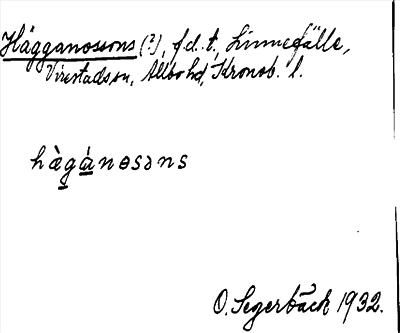 Hägganossons (?), f.d. t., Linnefälle,
Virestads sn, Allbo hd, Kronob. l.
hàgánosəns
O. Segerbäck 1932.